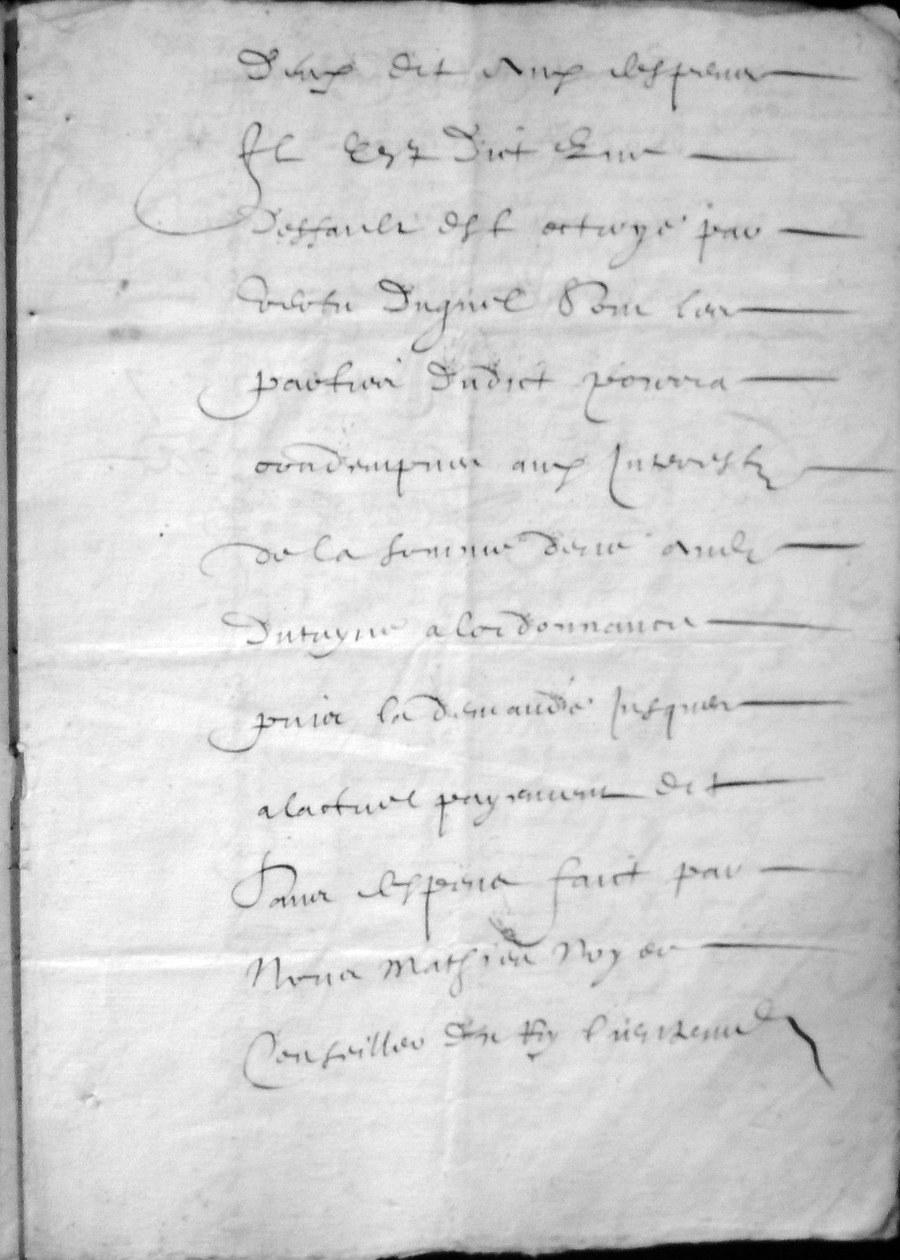 dict aux despens
Il Est Dict Que
deffault est octroyé par
vertu Duquel Sont les
parties Dudict
condempnes aux Interestz
de la somme deue
a lordonnance
la demande Jusques
a lactuel payement dict
Sans despens faict par
Nous Mathieu Noyer
Conseiller du Roy Lieutenant